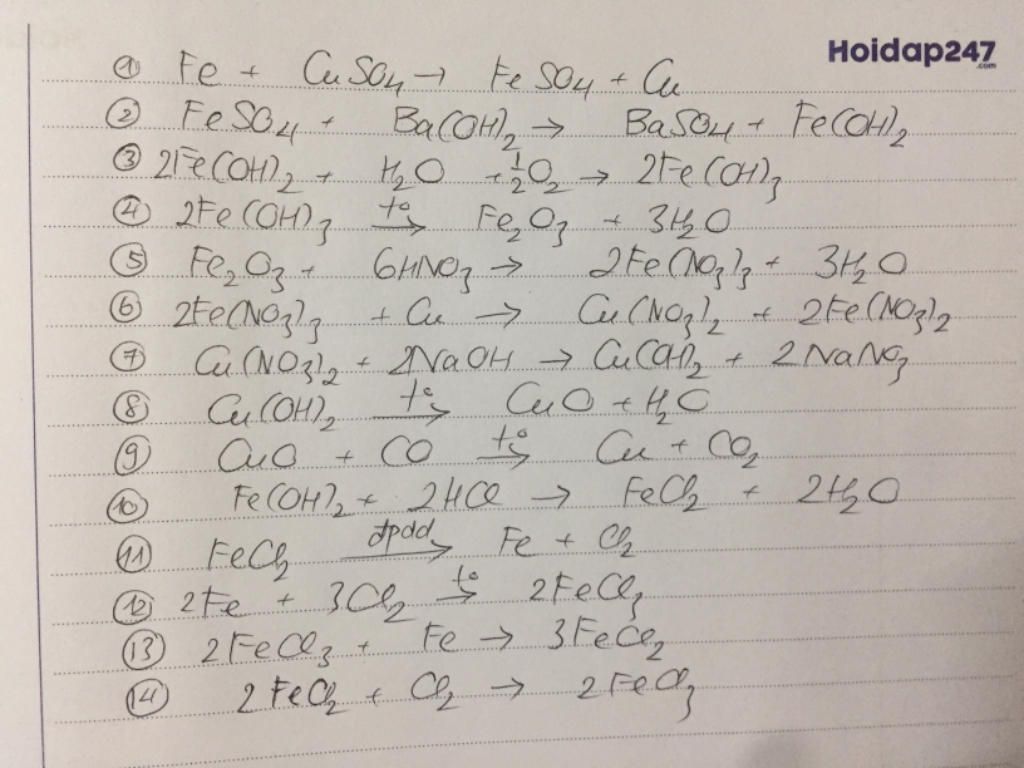 Hoidap247
.com
① Fe + CuSO₄ → FeSO₄ + Cu
② FeSO₄ + Ba(OH)₂ → BaSO₄ + Fe(OH)₂
③ 2Fe(OH)₂ + H₂O + ½O₂ → 2Fe(OH)₃
④ 2Fe(OH)₃ t° → Fe₂O₃ + 3H₂O
⑤ Fe₂O₃ + 6HNO₃ → 2Fe(NO₃)₃ + 3H₂O
⑥ 2Fe(NO₃)₃ + Cu → Cu(NO₃)₂ + 2Fe(NO₃)₂
⑦ Cu(NO₃)₂ + 2NaOH → Cu(OH)₂ + 2NaNO₃
⑧ Cu(OH)₂ t° → CuO + H₂O
⑨ CuO + CO t° → Cu + CO₂
⑩ Fe(OH)₂ + 2HCl → FeCl₂ + 2H₂O
⑪ FeCl₂ đpdd → Fe + Cl₂
⑫ 2Fe + 3Cl₂ t° → 2FeCl₃
⑬ 2FeCl₃ + Fe → 3FeCl₂
⑭ 2FeCl₂ + Cl₂ → 2FeCl₃